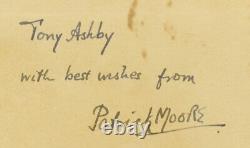 Tony Ashby
with best wishes from
Patrick MOORE.